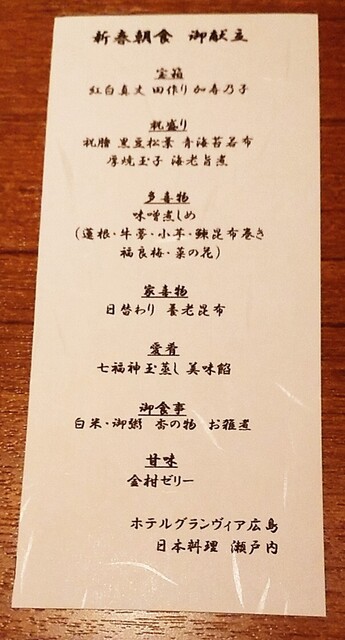 新春朝食 御献立
宝箱
紅白真丈 田作り 加寿乃子
祝盛り
祝膾 黒豆松葉 青海苔若布
厚焼玉子 海老旨煮
多喜物
味噌煮しめ
(蓮根・牛蒡・小芋・鰊昆布巻き
福良梅・菜の花)
家喜物
日替わり 養老昆布
愛肴
七福神玉蒸し 美味餡
御食事
白米・御粥 香の物 お雑煮
甘味
金柑ゼリー
ホテルグランヴィア広島
日本料理 瀬戸内